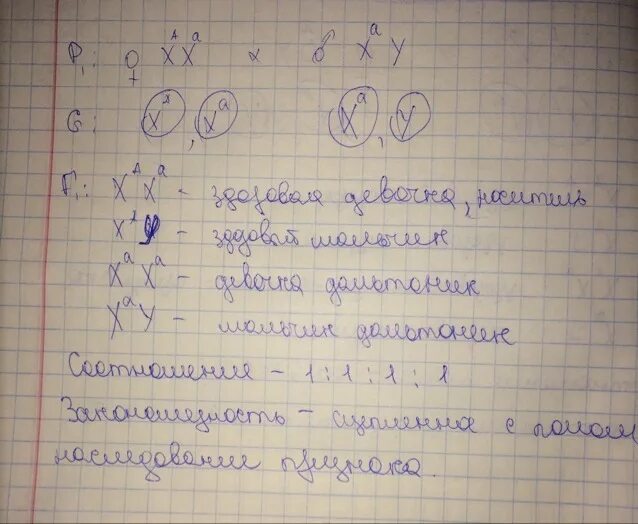 P₁: ♀ XᴬXᵃ × ♂ XᵃY
G: Xᴬ, Xᵃ Xᵃ, Y
F₁: XᴬXᵃ – здоровая девочка, носитель
XᴬY – здовый мальчик
XᵃXᵃ – девочка дальтоник
XᵃY – мальчик дальтоник
Соотношение – 1 : 1 : 1 : 1
Закономерность – сцепленна с полом
наследование признака.